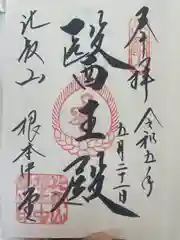 奉拝
令和五年
五月二十一日
醫王殿
比叡山
根本中堂